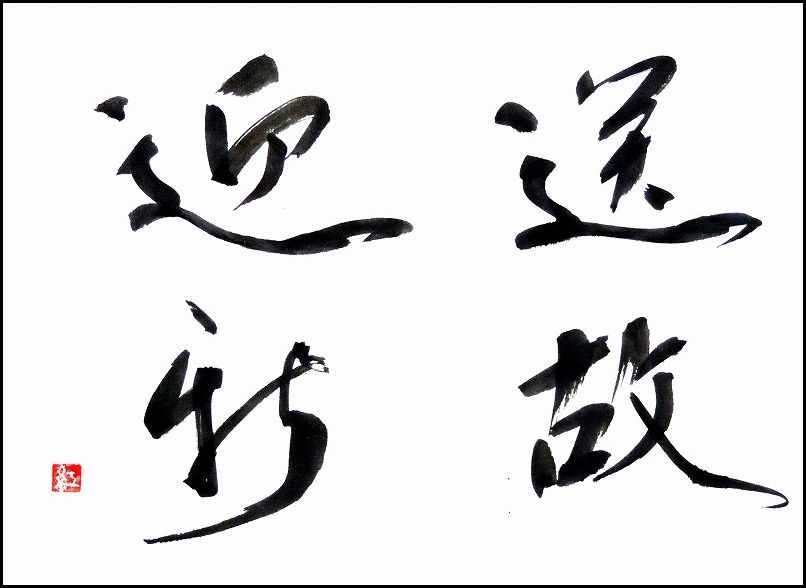 送故
迎新
紅